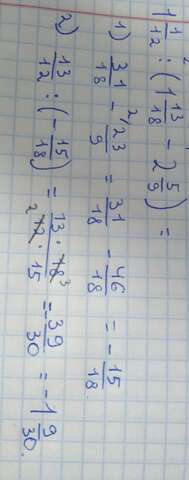 1 1/12 : (1 13/18 - 2 5/9) =
1) 31/18 - 23/9 ²⁾ = 31/18 - 46/18 = - 15/18
2) 13/12 : (- 15/18) = 13 · 18 ³ / ² 12 · 15 = - 39/30 = - 1 9/30.